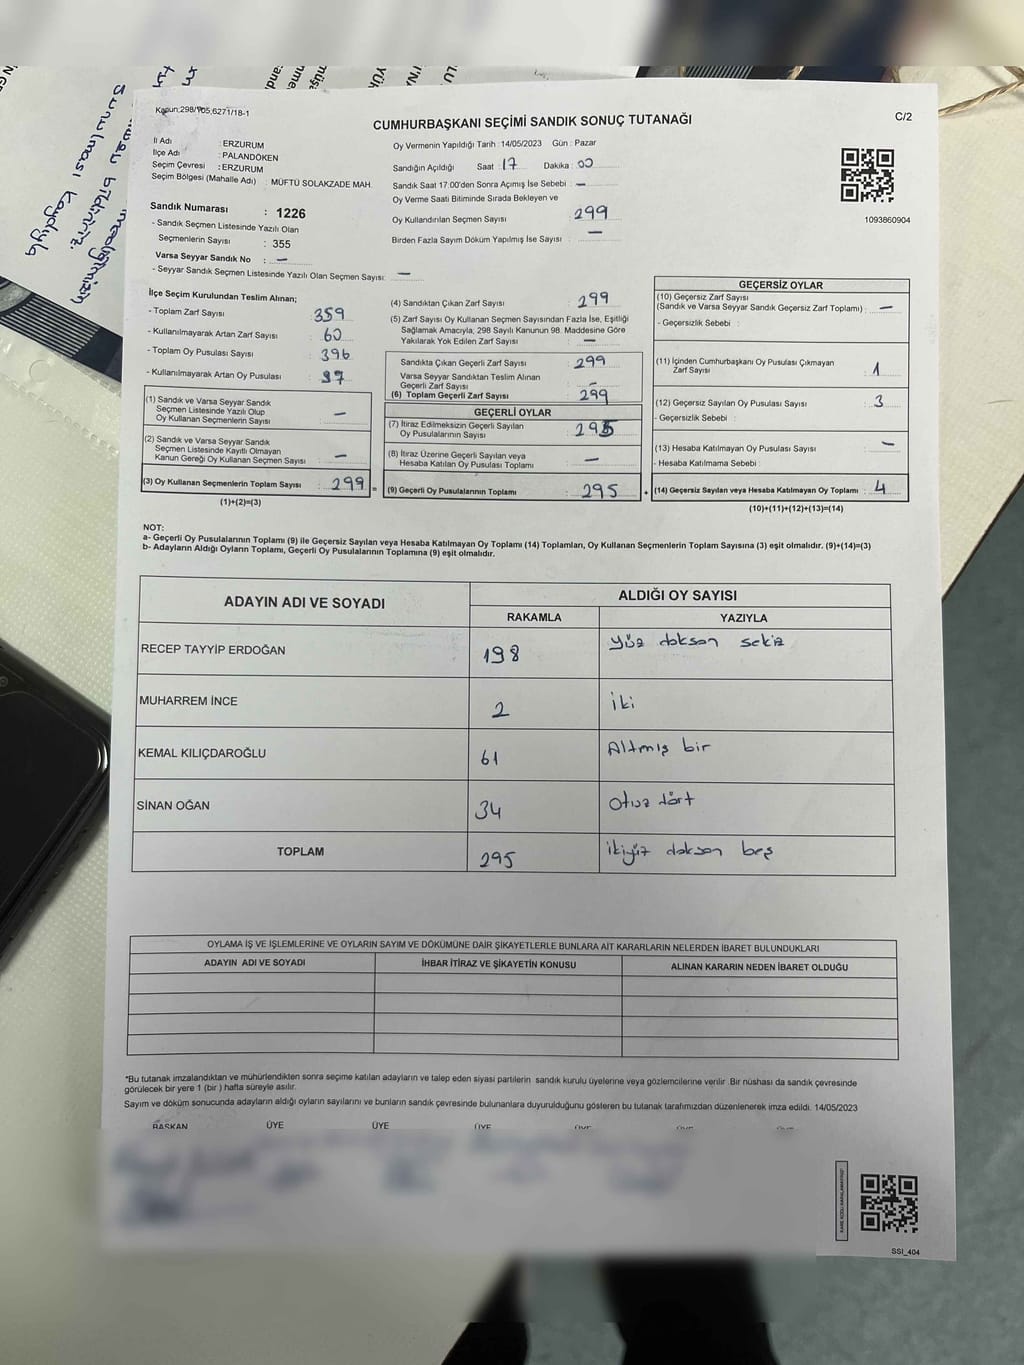 Kanun:298/105,6271/18-1
CUMHURBAŞKANI SEÇİMİ SANDIK SONUÇ TUTANAĞI
C/2
İl Adı : ERZURUM
İlçe Adı : PALANDÖKEN
Seçim Çevresi : ERZURUM
Seçim Bölgesi (Mahalle Adı) : MÜFTÜ SOLAKZADE MAH.
Sandık Numarası : 1226
- Sandık Seçmen Listesinde Yazılı Olan
Seçmenlerin Sayısı : 355
Varsa Seyyar Sandık No : —
- Seyyar Sandık Seçmen Listesinde Yazılı Olan Seçmen Sayısı: —
Oy Vermenin Yapıldığı Tarih : 14/05/2023 Gün : Pazar
Sandığın Açıldığı Saat : 17 Dakika : 00
Sandık Saat 17:00'den Sonra Açımış İse Sebebi : —
Oy Verme Saati Bitiminde Sırada Bekleyen ve
Oy Kullandırılan Seçmen Sayısı : 299
Birden Fazla Sayım Döküm Yapılmış İse Sayısı : —
1093860904
İlçe Seçim Kurulundan Teslim Alınan;
- Toplam Zarf Sayısı : 359
- Kullanılmayarak Artan Zarf Sayısı : 60
- Toplam Oy Pusulası Sayısı : 396
- Kullanılmayarak Artan Oy Pusulası : 97
(1) Sandık ve Varsa Seyyar Sandık
Seçmen Listesinde Yazılı Olup
Oy Kullanan Seçmenlerin Sayısı : —
(2) Sandık ve Varsa Seyyar Sandık
Seçmen Listesinde Kayıtlı Olmayan
Kanun Gereği Oy Kullanan Seçmen Sayısı : —
(3) Oy Kullanan Seçmenlerin Toplam Sayısı : 299 =
(1)+(2)=(3)
(4) Sandıktan Çıkan Zarf Sayısı : 299
(5) Zarf Sayısı Oy Kullanan Seçmen Sayısından Fazla İse, Eşitliği
Sağlamak Amacıyla, 298 Sayılı Kanunun 98. Maddesine Göre
Yakılarak Yok Edilen Zarf Sayısı : —
Sandıkta Çıkan Geçerli Zarf Sayısı : 299
Varsa Seyyar Sandıktan Teslim Alınan
Geçerli Zarf Sayısı : —
(6) Toplam Geçerli Zarf Sayısı : 299
GEÇERLİ OYLAR
(7) İtiraz Edilmeksizin Geçerli Sayılan
Oy Pusulalarının Sayısı : 295
(8) İtiraz Üzerine Geçerli Sayılan veya
Hesaba Katılan Oy Pusulası Toplamı : —
(9) Geçerli Oy Pusulalarının Toplamı : 295 +
GEÇERSİZ OYLAR
(10) Geçersiz Zarf Sayısı
(Sandık ve Varsa Seyyar Sandık Geçersiz Zarf Toplamı) : —
- Geçersizlik Sebebi :
(11) İçinden Cumhurbaşkanı Oy Pusulası Çıkmayan
Zarf Sayısı : 1
(12) Geçersiz Sayılan Oy Pusulası Sayısı : 3
- Geçersizlik Sebebi :
(13) Hesaba Katılmayan Oy Pusulası Sayısı : —
- Hesaba Katılmama Sebebi :
(14) Geçersiz Sayılan veya Hesaba Katılmayan Oy Toplamı : 4
(10)+(11)+(12)+(13)=(14)
NOT:
a- Geçerli Oy Pusulalarının Toplamı (9) ile Geçersiz Sayılan veya Hesaba Katılmayan Oy Toplamı (14) Toplamları, Oy Kullanan Seçmenlerin Toplam Sayısına (3) eşit olmalıdır. (9)+(14)=(3)
b- Adayların Aldığı Oyların Toplamı, Geçerli Oy Pusulalarının Toplamına (9) eşit olmalıdır.
ADAYIN ADI VE SOYADI
ALDIĞI OY SAYISI
RAKAMLA YAZIYLA
RECEP TAYYİP ERDOĞAN 198 Yüz doksan sekiz
MUHARREM İNCE 2 iki
KEMAL KILIÇDAROĞLU 61 Altmış bir
SİNAN OĞAN 34 Otuz dört
TOPLAM 295 ikiyüz doksan beş
OYLAMA İŞ VE İŞLEMLERİNE VE OYLARIN SAYIM VE DÖKÜMÜNE DAİR ŞİKAYETLERLE BUNLARA AİT KARARLARIN NELERDEN İBARET BULUNDUKLARI
ADAYIN ADI VE SOYADI İHBAR İTİRAZ VE ŞİKAYETİN KONUSU ALINAN KARARIN NEDEN İBARET OLDUĞU
*Bu tutanak imzalandıktan ve mühürlendikten sonra seçime katılan adayların ve talep eden siyasi partilerin sandık kurulu üyelerine veya gözlemcilerine verilir .Bir nüshası da sandık çevresinde
görülecek bir yere 1 (bir ) hafta süreyle asılır.
Sayım ve döküm sonucunda adayların aldığı oyların sayılarını ve bunların sandık çevresinde bulunanlara duyurulduğunu gösteren bu tutanak tarafımızdan düzenlenerek imza edildi. 14/05/2023
BAŞKAN ÜYE ÜYE ÜYE
SSI_404